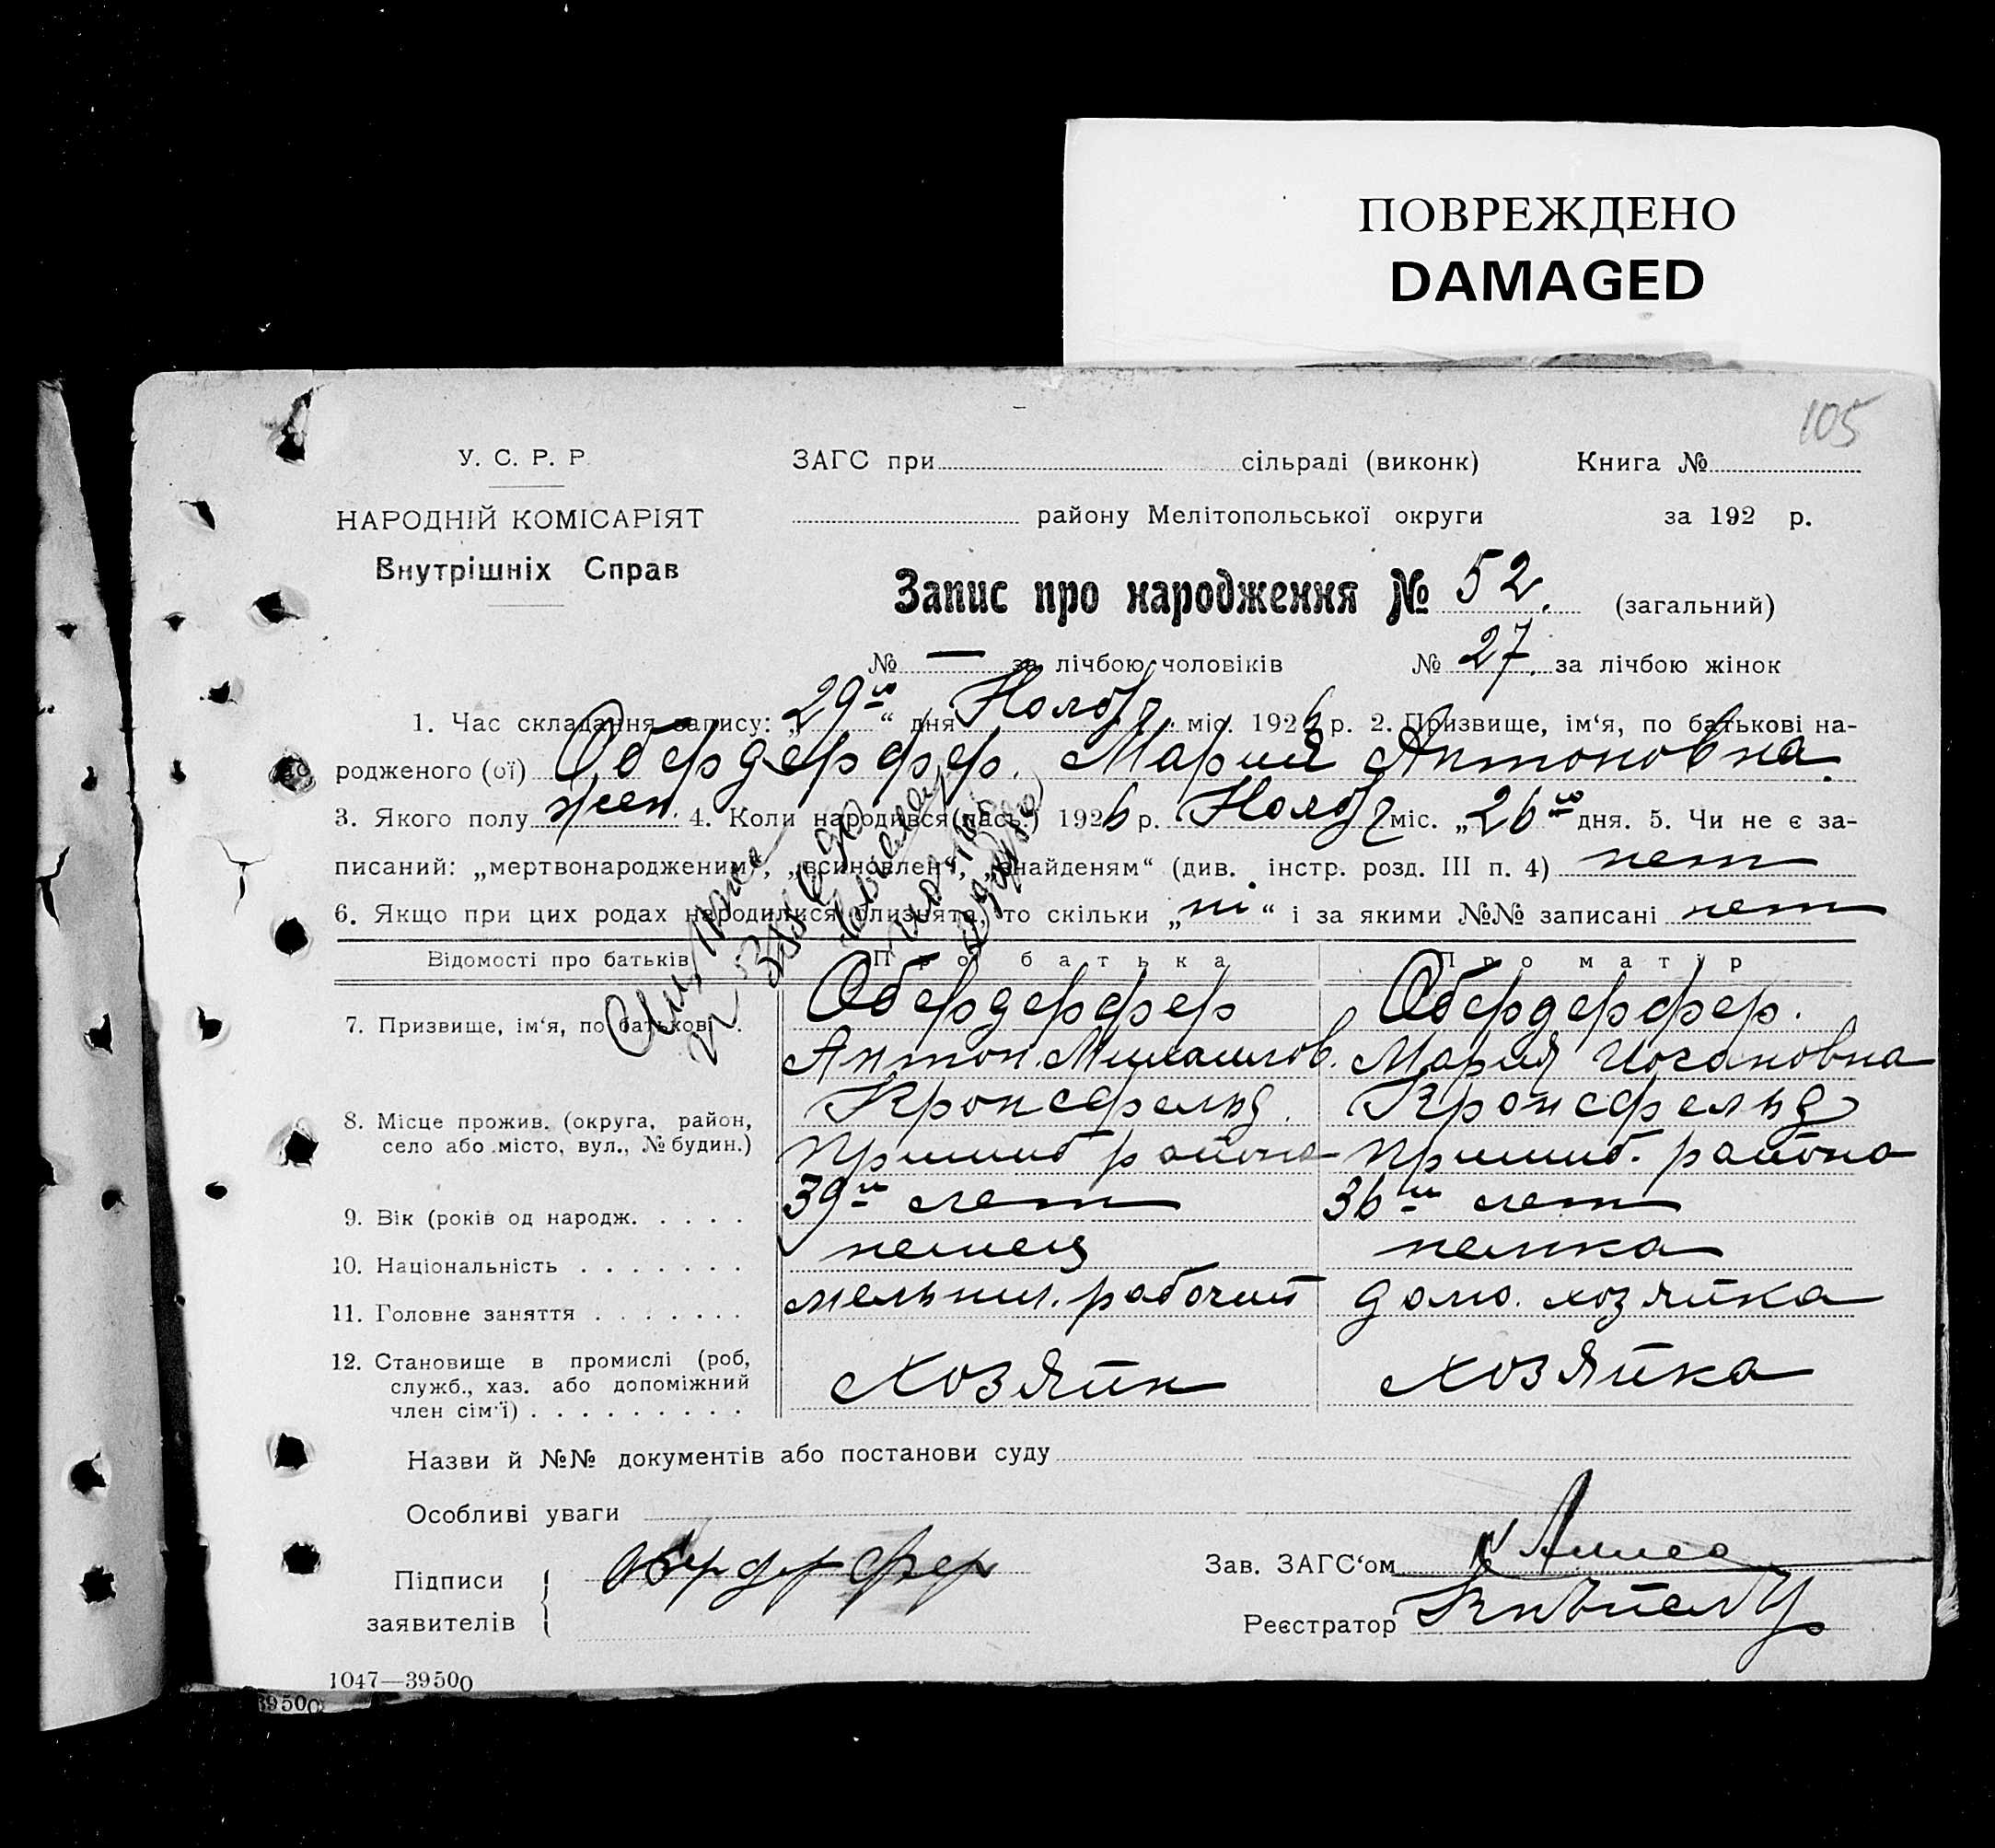 ПОВРЕЖДЕНО
DAMAGED
105
У. С. Р. Р.
НАРОДНІЙ КОМІСАРІЯТ
Внутрішніх Справ
ЗАГС при сільраді (виконк) Книга №
району Мелітопольської округи за 192 р.
Запис про народження № 52. (загальний)
№ — за лічбою чоловіків № 27. за лічбою жінок
1. Час складання запису: „29го“ дня Нояб міс. 1926 р. 2. Призвище, ім‘я, по батькові на-
родженого (ої) Обердерфер. Мария Антоновна.
3. Якого полу жен. 4. Коли народився (лась) 1926 р. Нояб міс. „26го дня. 5. Чи не є за-
писаний: „мертвонародженим“, „всиновлен“, „знайденям“ (див. інстр. розд. III п. 4) нет
6. Якщо при цих родах народилися близнята, то скільки „ні“ і за якими №№ записані нет
Відомості про батьків Про батька Про матір
7. Призвище, ім‘я, по батькові . Обердерфер Обердерфер.
Антон Михайлов. Мария Иогановна
8. Місце прожив. (округа, район, Кронсфельд. Кронсфельд
село або місто, вул., № будин.) Пришиб района Пришиб. района
9. Вік (років од народж. . . . . 39ти лет 36ти лет
10. Національність . . . . . . . немец немка
11. Головне заняття . . . . . . . мельнич. рабочий домо. хозяйка
12. Становище в промислі (роб, хозяин хозяйка
служб., хаз. або допоміжний
член сім‘ї) . . . . . . . . .
Назви й №№ документів або постанови суду
Особливі уваги
Підписи Обердерфер Зав. ЗАГС‘ом
заявителів Реєстратор
1047—39500
39500